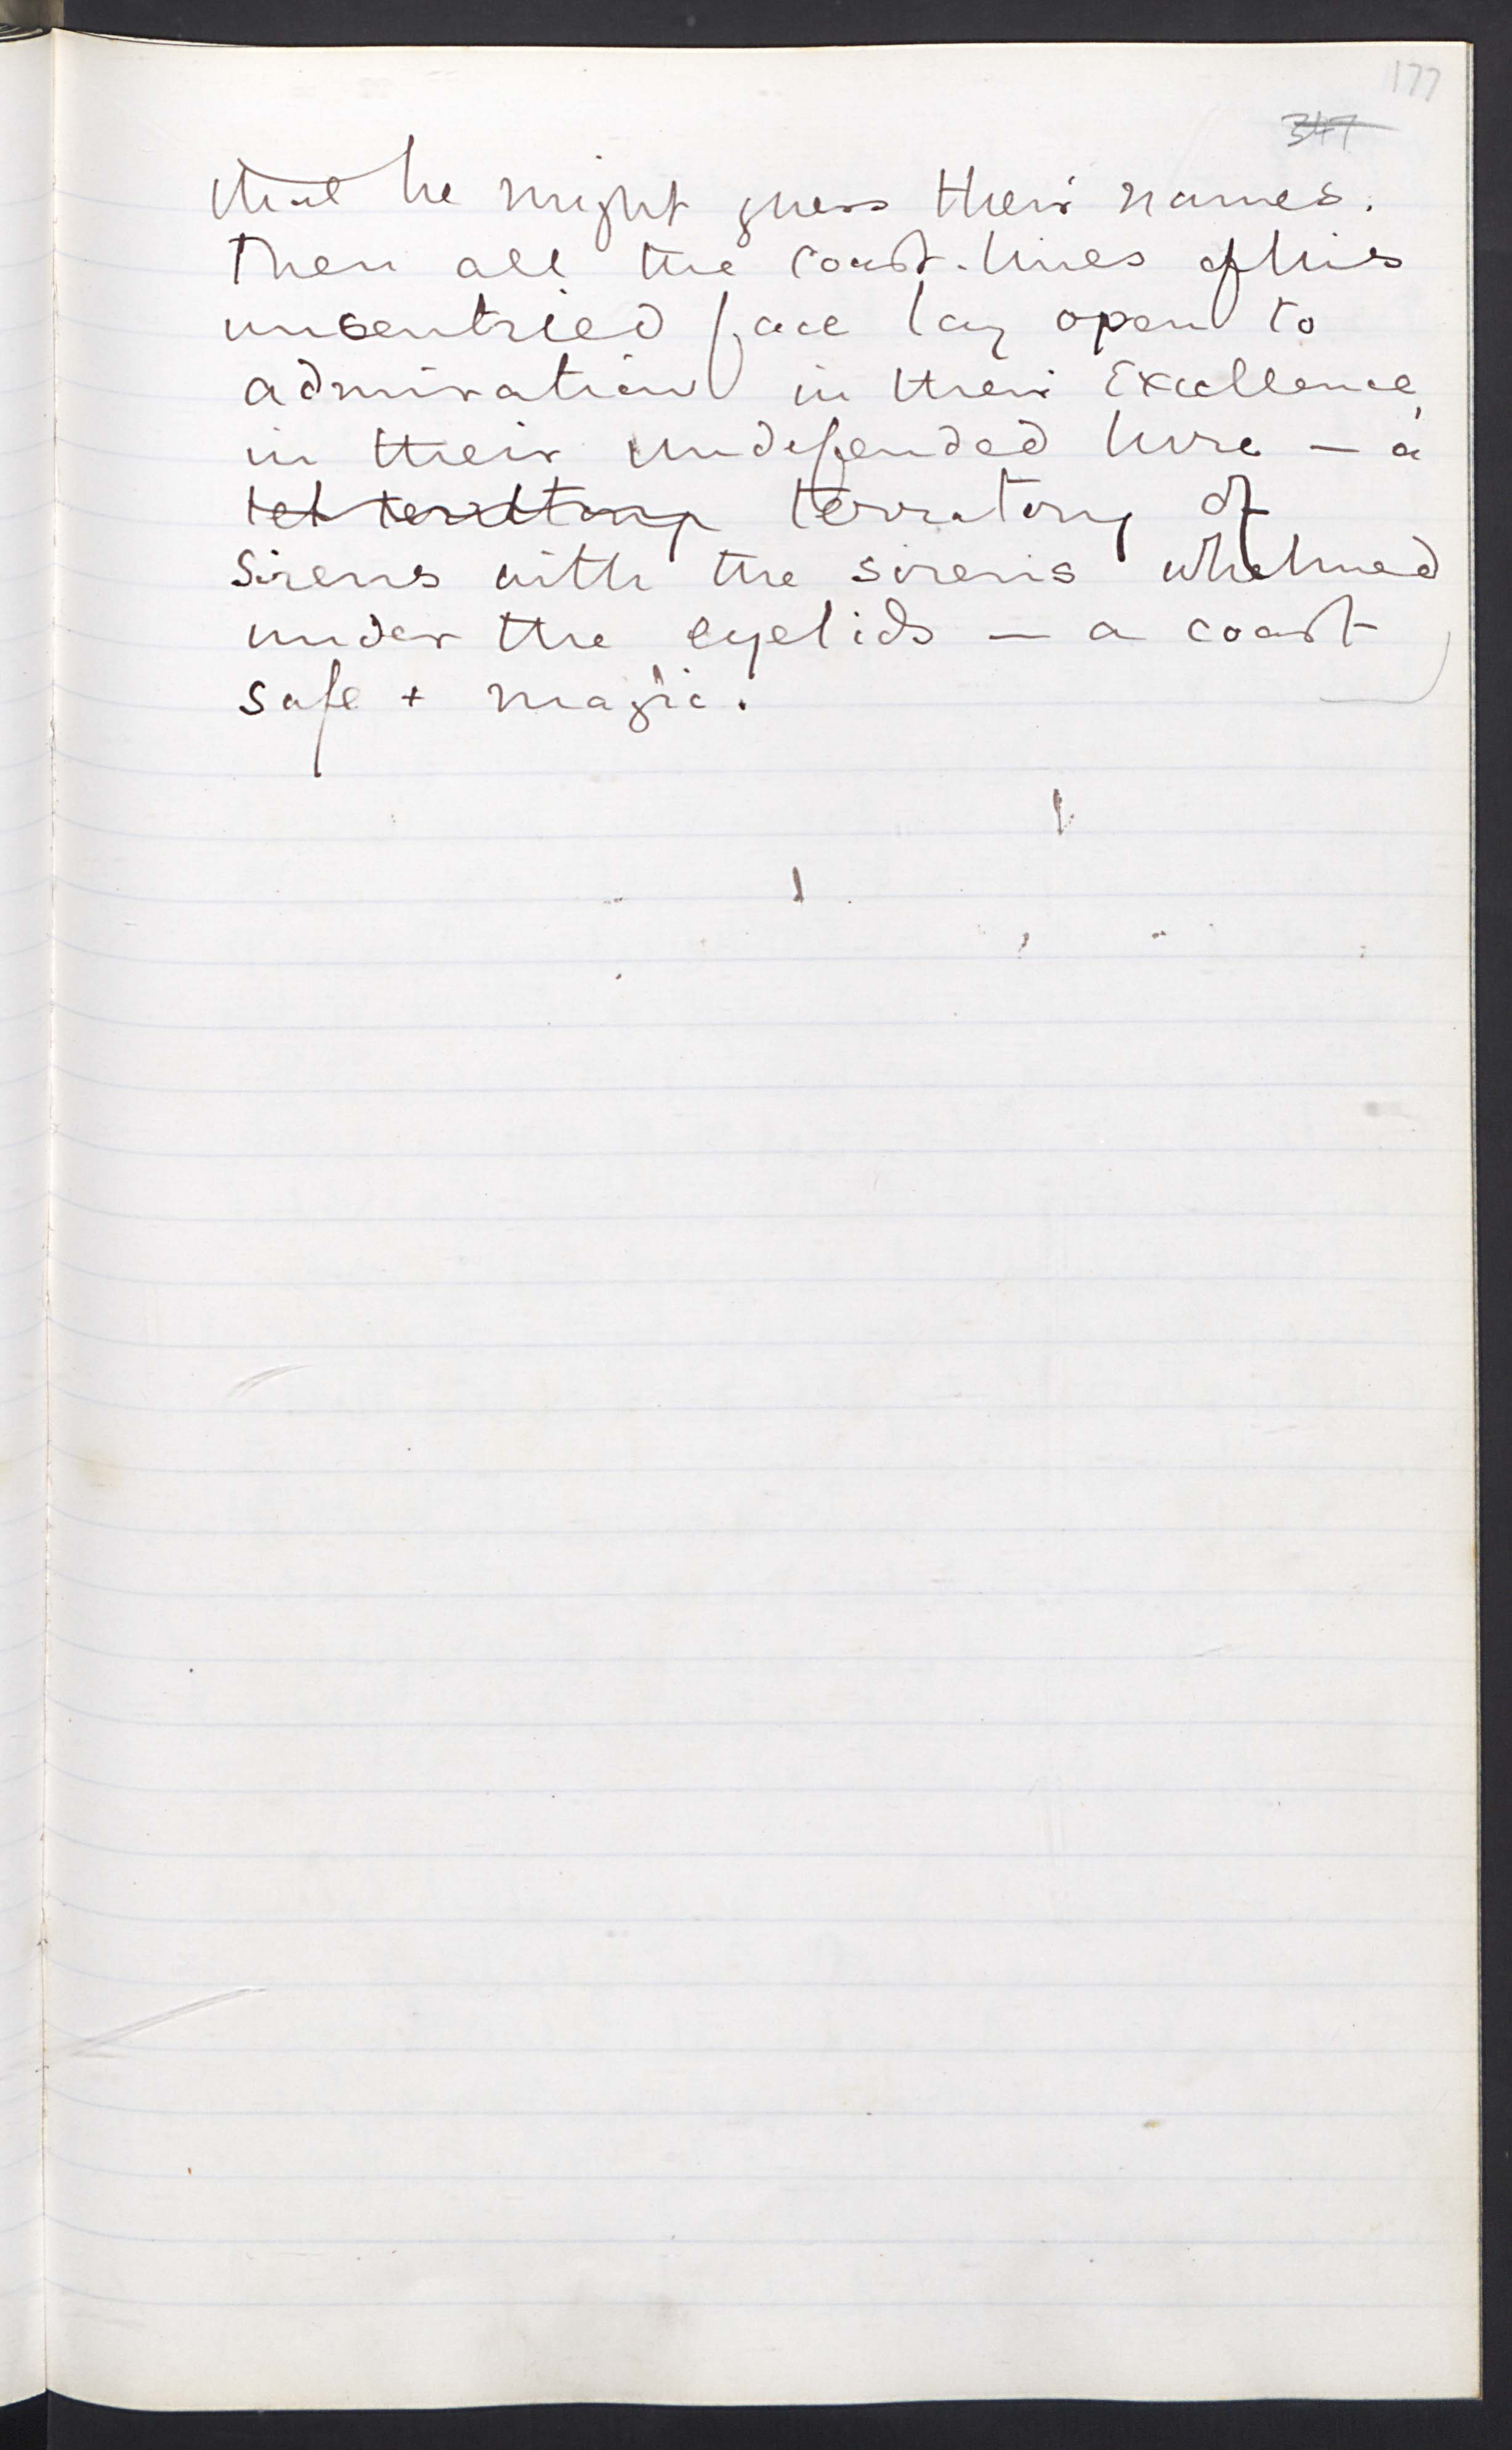 177
347
that he might guess their names.
Then all the coast-lines of his
unsentried face lay open to
admiration in their Excellence,
in their undefended lure — a
tet territory territory of
Sirens with the sirens whelmed
under the eyelids — a coast
safe + magic.